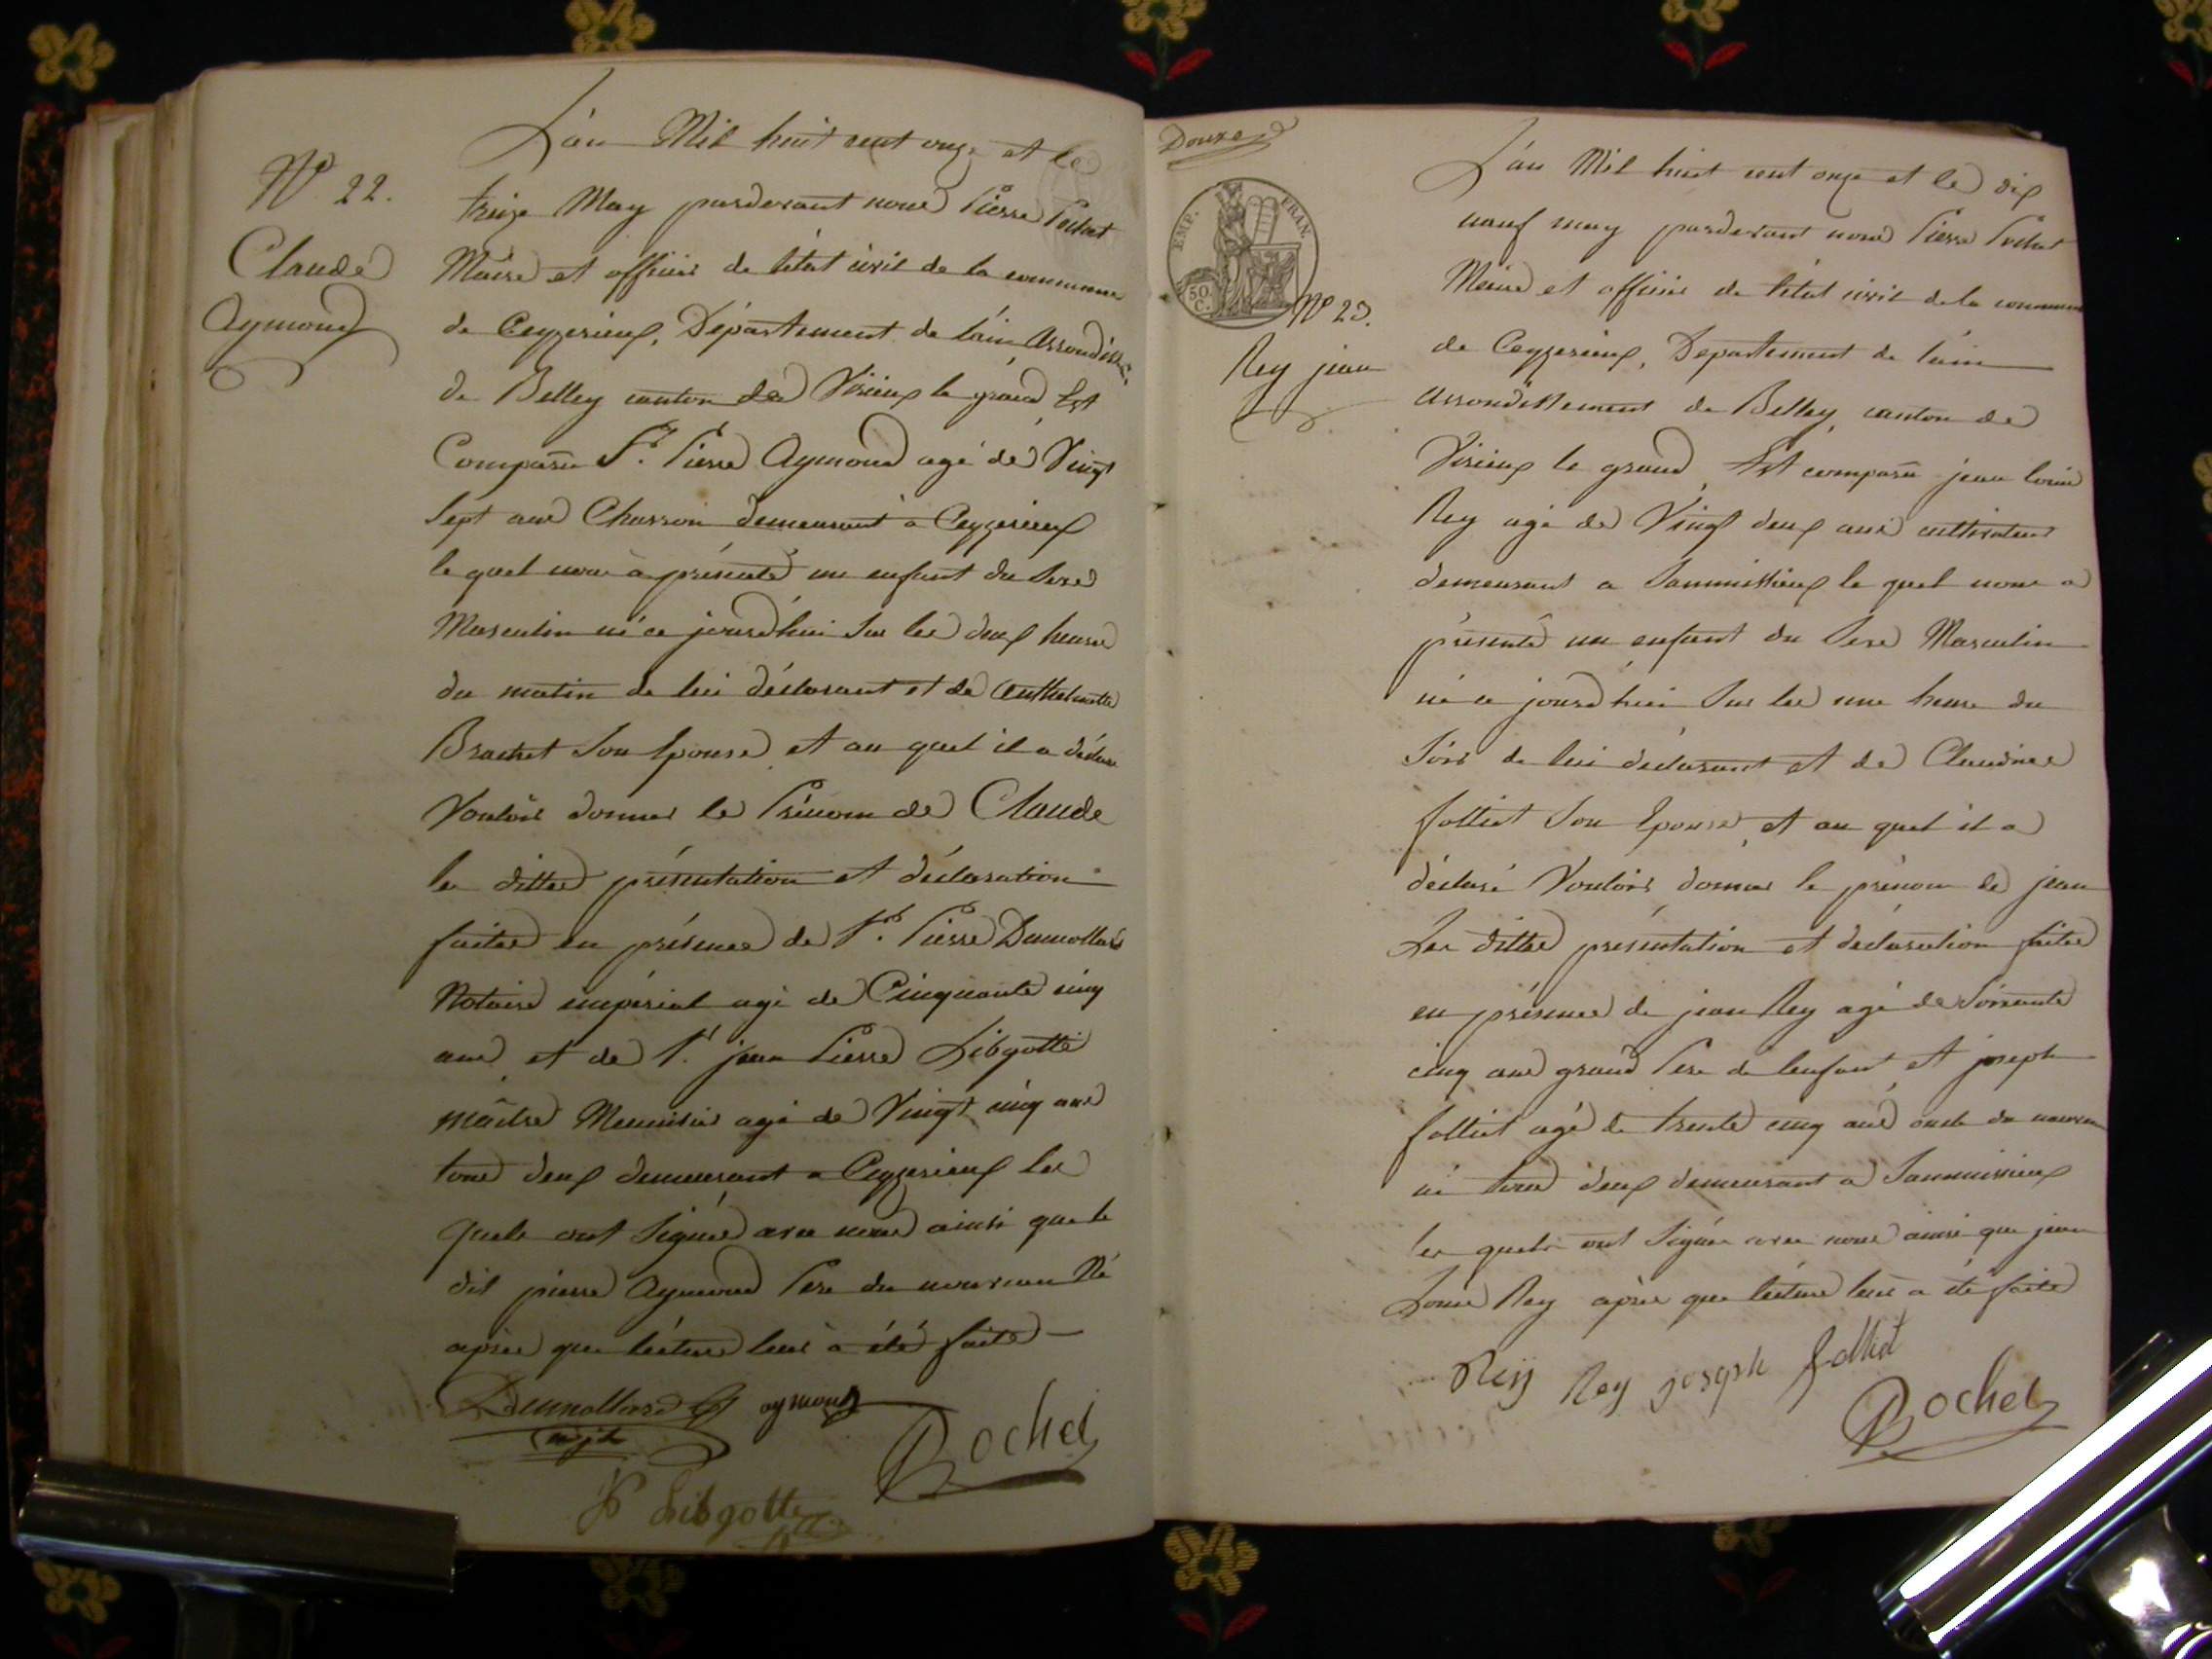 N° 22.
Claude
Aymond
L'an Mil huit cent onze et le
treize May pardevant nous Pierre Pochet
Maire et officier de l'état civil de la commune
de Ceyzerieux, Département de l'ain Arrondissemt.
de Belley canton de Virieux le grand Est
Comparu Sr. Pierre Aymond agé de Vingt
Sept ans Charron demeurant à Ceyzerieux
le quel nous à présenté un enfant du Sexe
Masculin né ce jourd'hui Sur les deux heures
du matin de lui déclarant et de Anthelmette
Brachet Son Epouse et au quel il a déclaré
Vouloir donner le Prénom de Claude
les dittes présentation et déclaration
faites en présence de Sr. Pierre Dumollard
Notaire impérial agé de Cinquante cinq
ans et de Sr. jean Pierre Libgotte
maître Menuisier agé de Vingt cinq ans
tous deux demeurant a Ceyzerieux les
quels ont Signés avec nous ainsi que le
dit pierre Aymond Pere du nouveau Né
après que lecture leur à été faite
Dumollard aymond
JP Libgotte
Pochet
Douze
EMP. FRAN.
50 C.
N° 23.
Rey jean
L'an Mil huit cent onze et le dix
neuf may pardevant nous Pierre Pochet
Maire et officier de l'état civil de la commune
de Ceyzerieux, Departement de l'ain
Arrondissement de Belley, canton de
Virieux le grand, Est comparu jean Louis
Rey agé de Vingt deux ans cultivateur
demeurant a Sammissieux le quel nous a
présenté un enfant du Sexe Masculin
né ce jourd'hui Sur les une heure du
Soir de lui déclarant et de Claudine
folliet Son Epouse, et au quel il a
déclaré Vouloir donner le prénom de jean
Les dittes présentation et déclaration faites
en présence de jean Rey agé de Soixante
cinq ans grand Pere de l'enfant et joseph
folliet agé de trente cinq ans oncle du nouveau
né tous deux demeurant a Sammissieux
les quels ont Signés avec nous ainsi que jean
Louis Rey après que lecture leur a été faite
Reij Rey joseph folliet
Pochet